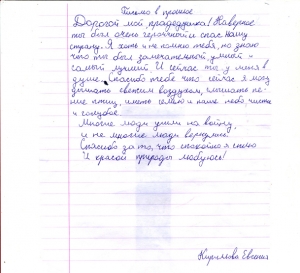 Письмо в прошлое
Дорогой мой прадедушка! Наверное
ты был очень героичным и спас нашу
страну. Я хоть и не помню тебя, но знаю
что ты был замечательный, умный и
самый лучший. И сейчас ты у меня в
душе. Спасибо тебе что сейчас я могу
дышать свежим воздухом, слышать пе-
ние птиц, иметь семью и наше небо чистое
и голубое.
Многие люди ушли на войну,
и не многие люди вернулись.
Спасибо за то, что спокойно я сплю
И красой природы любуюсь!
Евгения